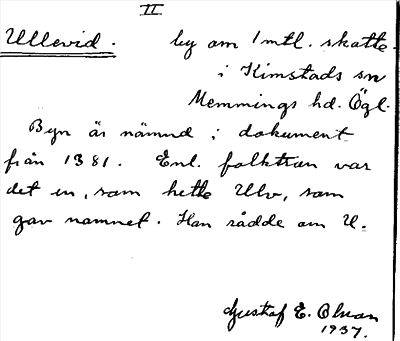 II
Ullevid. by om 1 mtl. skatte.
i Kimstads sn
Memmings hd. Ögl.
Byn är nämnd i dokument
från 1381. Enl. folktron var
det en, som hette Ulv, som
gav namnet. Han rådde om U.
Gustaf E. Olson
1937.